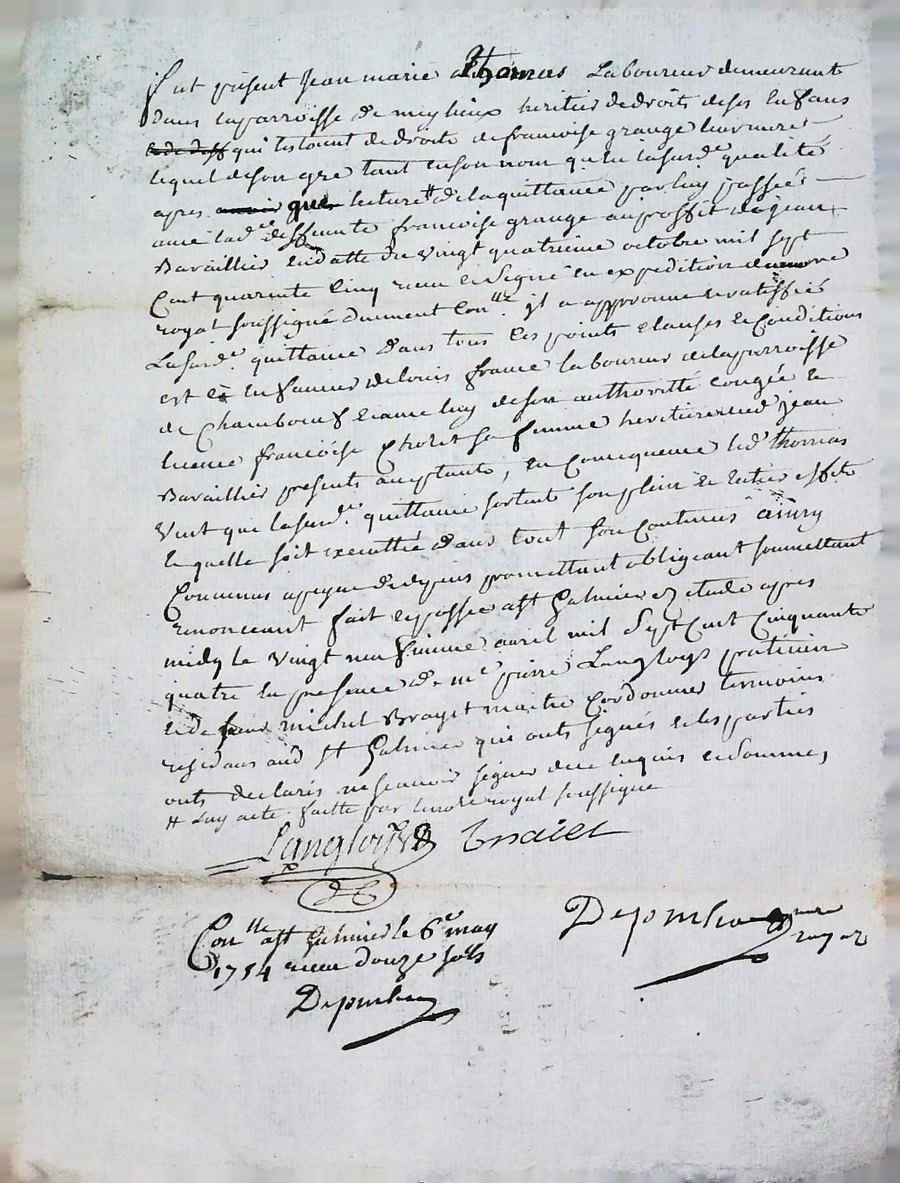 fut présent Jean marie Thomas Laboureur demeurant
dans la parroisse de meylieux heritier de droits de ses Enfans
qui lestoient de droits de francoise grange leur mere
lequel de son gre tant en son nom qu'en la susd.e qualité
apres que lecture # de la quittance par luy passée
avec lad.e deffunte francoise grange au proffit de jean
Bavaillier en datte du vingt quatrieme octobre mil sept
Cent quarente Cinq receu et signé en expedition
royal soussigné duement Con.llé jl a approuvé et ratiffié
La susd.e quittance dans tous les points clauses et Conditions
est en faveur de louis france laboureur de la parroisse
de Chambœuf et avec luy de son authorité Congée et
licence francoise sa femme heritiere dud jean
Bavaillier presents acceptants, en Consequence led thomas
Veut que la susd.e quittance sortent son plein et entier effets
laquelle soit executtée dans tout son Contenus ainsy
Convenus a peyne de depens promettant obligeant soumettant
renonceant fait et passé a st Galmier ez etude apres
midy le vingt neufvieme avril mil sept Cent Cinquante
quatre en presence de m.e pierre Langloys praticien
et de michel Brayet maitre Cordonnier temoins
residans aud st Galmier qui onts signés et les parties
onts declarés ne scavoir signer de ce enquis et sommes,
# Luy avoir faitte par le no.re royal soussigne
Langloys
Con.llé a st Galmier le 6.e may
1754 receu douze sols
royal